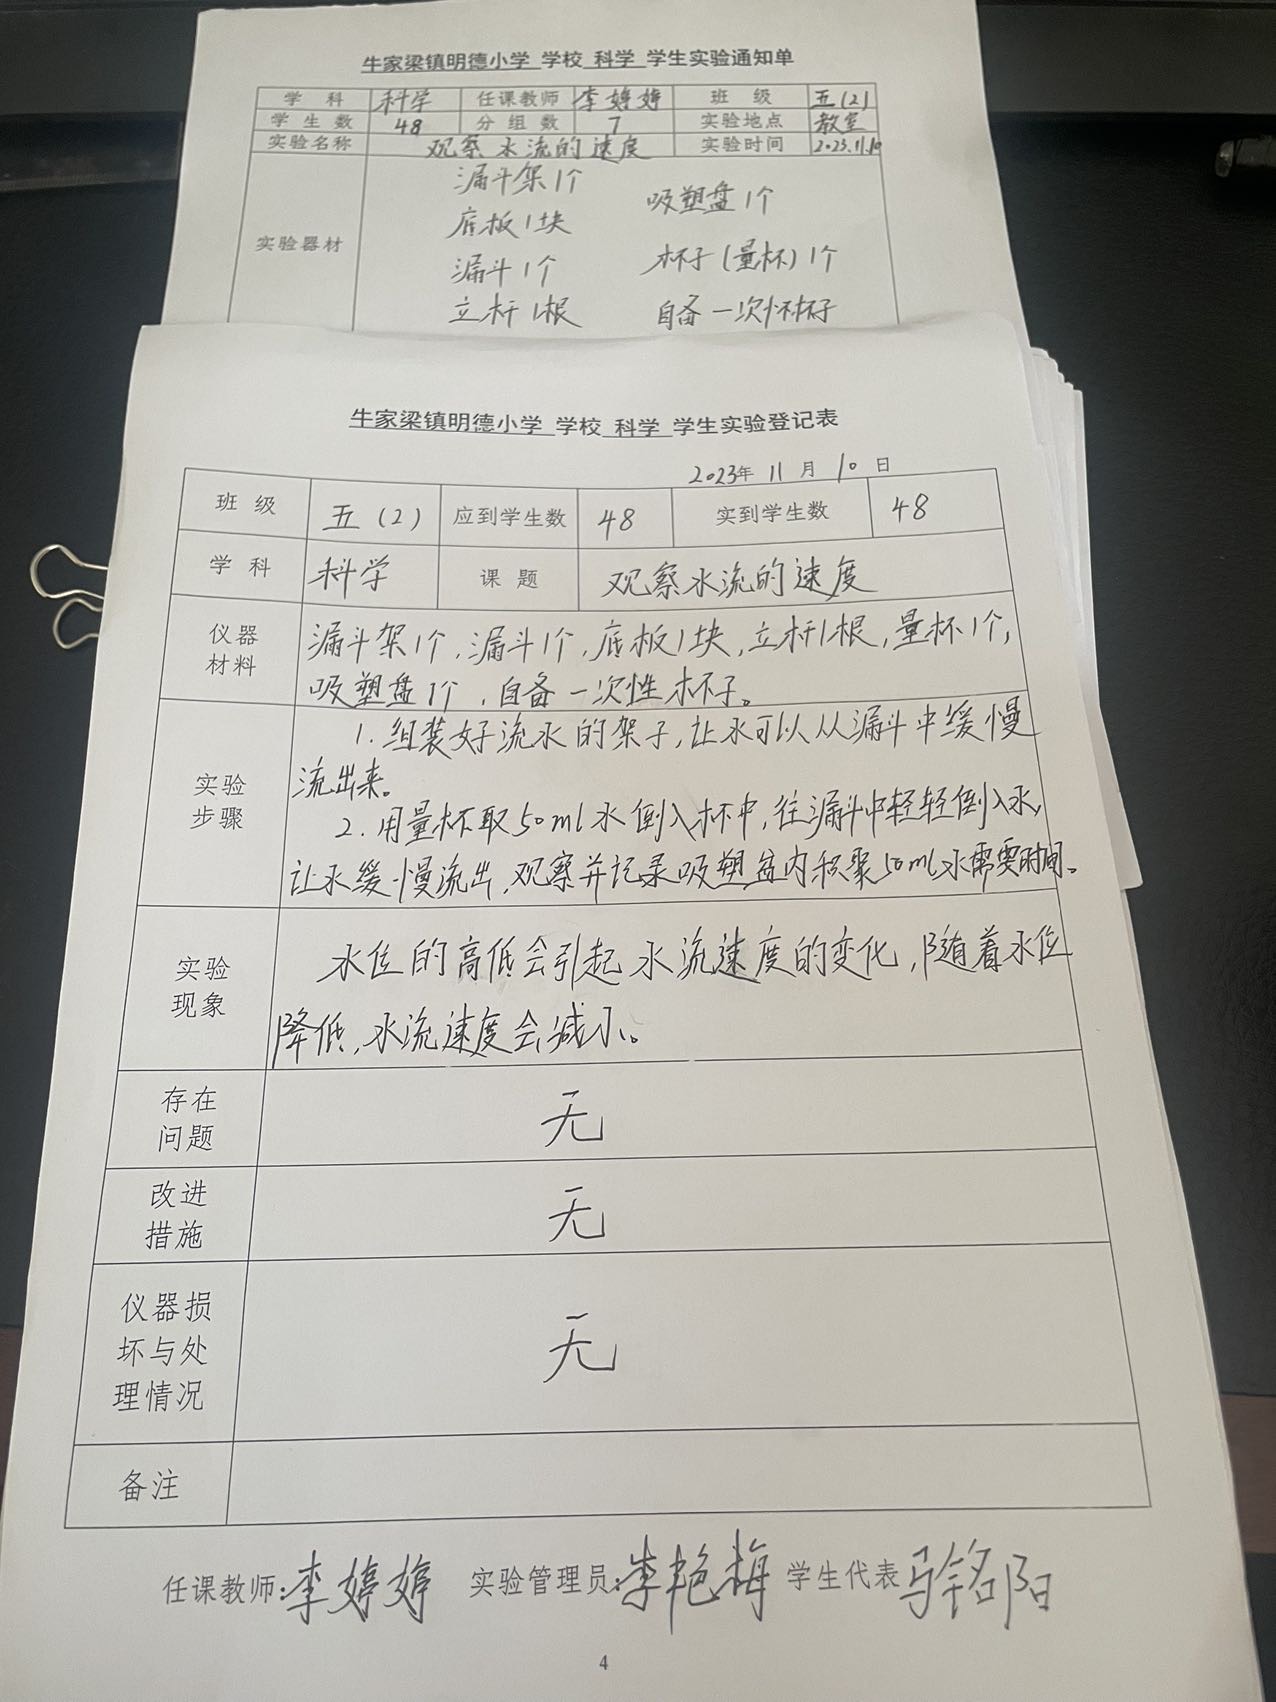 牛家梁镇明德小学 学校 科学 学生实验通知单
学科 科学 任课教师 李婷婷 班级 五(2)
学生数 48 分组数 7 实验地点 教室
实验名称 观察水流的速度 实验时间 2023.11.10
实验器材
漏斗架1个 吸塑盘1个
底板1块
漏斗1个 杯子(量杯)1个
立杆1根 自备一次性杯子
牛家梁镇明德小学 学校 科学 学生实验登记表
2023年 11月 10日
班级 五(2) 应到学生数 48 实到学生数 48
学科 科学 课题 观察水流的速度
仪器
材料
漏斗架1个,漏斗1个,底板1块,立杆1根,量杯1个,
吸塑盘1个,自备一次性杯子。
实验
步骤
1.组装好流水的架子,让水可以从漏斗中缓慢
流出来。
2.用量杯取50ml水倒入杯中,往漏斗中轻轻倒入水,
让水缓慢流出,观察并记录吸塑盘内积聚50ml水需要时间。
实验
现象
水位的高低会引起水流速度的变化,随着水位
降低,水流速度会减小。
存在
问题
无
改进
措施
无
仪器损
坏与处
理情况
无
备注
任课教师:李婷婷 实验管理员:李艳梅 学生代表 马铭阳
4